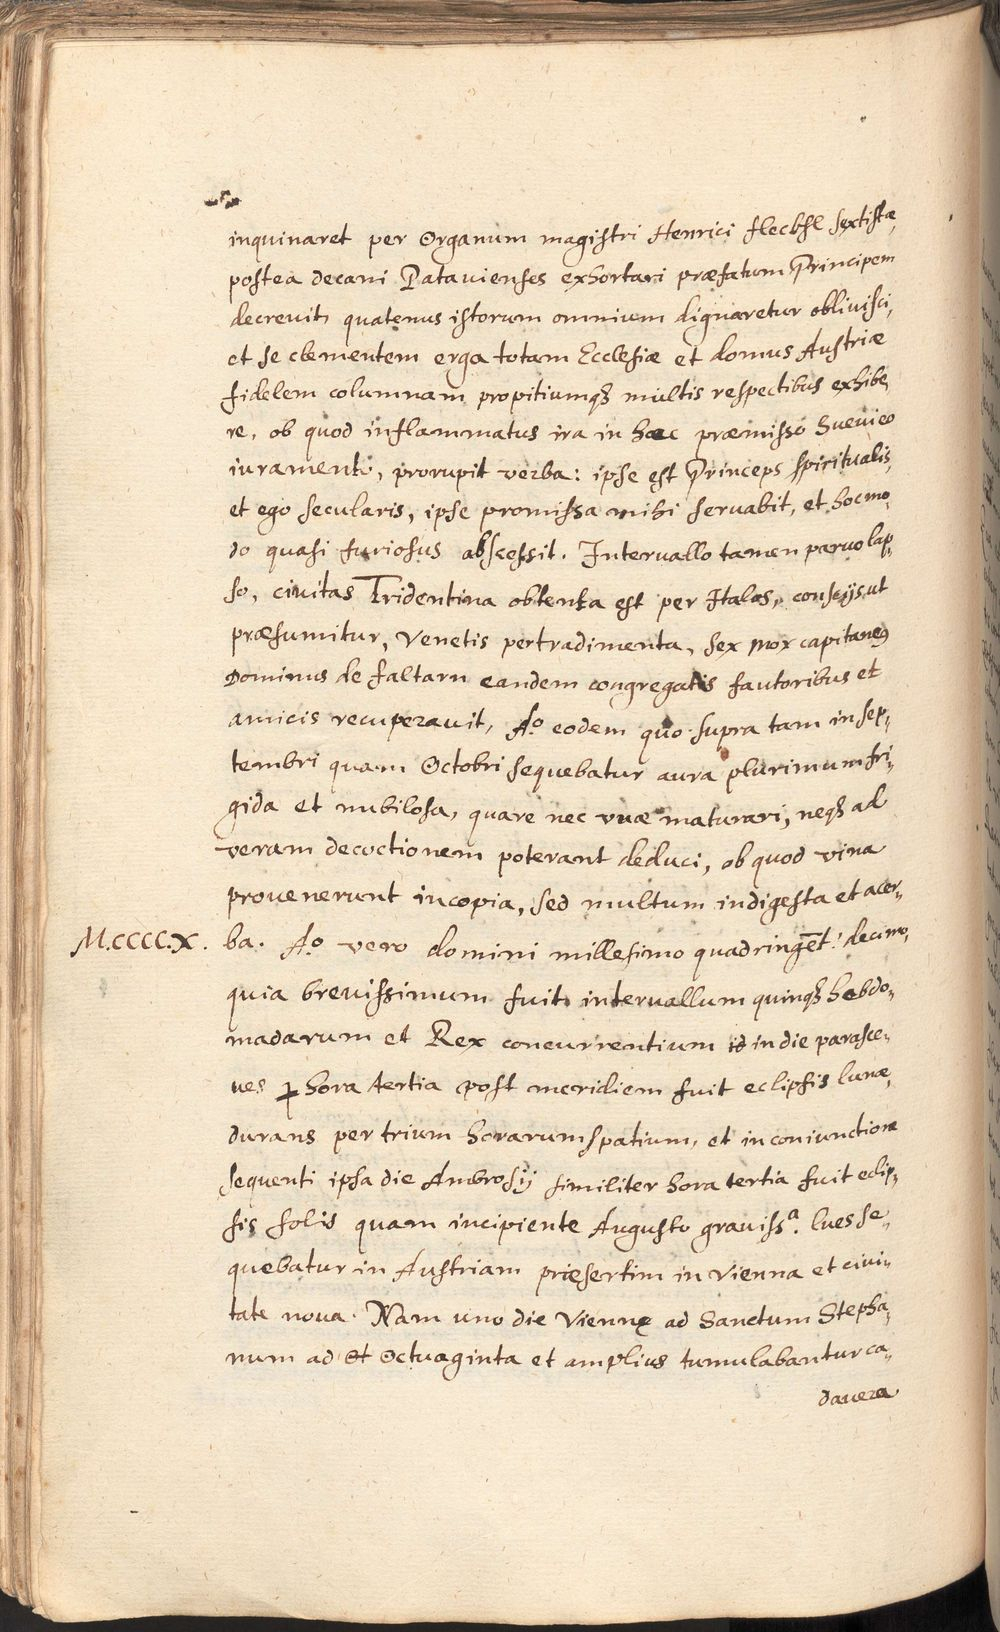 inquinaret per Organum magistri Henrici flecksl sextistæ,
postea decani Patauienses exhortari præfatum Principem
decreuit, quatenus istorum omnium dignaretur obliuisci,
et se clementem erga totam Ecclesiæ et domus Austriæ
fidelem columnam propitiumqȝ multis respectibus exhibe,
re, ob quod inflammatus ira in hæc præmisso Sueuico
iuramento, prorupit verba: ipse est Princeps spiritualis,
et ego secularis, ipse promissa mihi seruabit, et hoc mo,
do quasi furiosus abscessit. Interuallo tamen paruo lap,
so, ciuitas Tridentina obtenta est per Italos, conscijs ut
præsumitur, Venetis pertradimenta, sex mox capitaneꝰ
Dominus de faltarn eandem congregatis fautoribus et
amicis recuperauit, Aº. eodem quo supra tam in sep,,
tembri quam Octobri sequebatur aura plurimum fri,,
gida et nubilosa, quare nec vuæ maturari, neqȝ ad
veram decoctionem poterant deduci, ob quod vina
prouenerunt in copia, sed multum indigesta et acer,,
M.CCCC.X. ba. Aº. vero domini millesimo quadringēt: decimo,
quia breuissimum fuit interuallum quinqȝ hebdo,,
madarum et Rex concurrentium id in die parasce,,
ues ꝑ hora tertia post meridiem fuit eclipsis lunæ,
durans per trium horarum spatium, et in coniunctione
sequenti ipsa die Ambrosij similiter hora tertia fuit eclip,,
sis solis quam incipiente Augusto grauissª. lues se,,
quebatur in Austriam præsertim in Vienna et ciui,,
tate noua. Nam uno die Viennę ad Sanctum Stepha,,
num ad Octuaginta et amplius tumulabantur ca,,
dauera